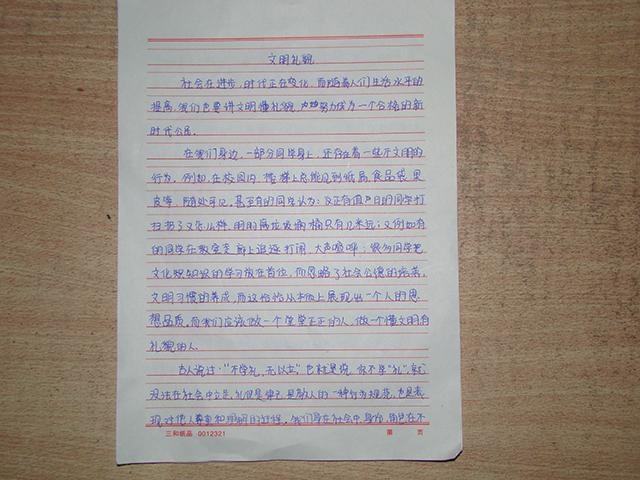 文明礼貌
社会在进步,时代正在变化,而随着人们生活水平的
提高,我们也要讲文明懂礼貌,努力成为一个合格的新
时代公民。
在我们身边,一部分同学身上,还存在着一些不文明的
行为。例如,在校园内、楼梯上总能见到纸屑、食品袋、果
皮等,随处可见,甚至有的同学认为:反正有值日的同学打
扫,扔了又怎么样,明明离垃圾桶只有几米远;又例如有
的同学在教室走廊上追逐打闹,大声喧哗;很多同学把
文化知识的学习放在首位,而忽略了社会公德的培养,
文明习惯的养成,而这恰恰从本质上展现出一个人的思
想品质,而我们应该做一个堂堂正正的人,做一个懂文明有
礼貌的人。
古人说过:"不学礼,无以立",也就是说,你不学"礼",就
没法在社会中立足,礼仪是人的一种行为规范,也是表
现对他人尊重和理解的过程,我们身在社会中,身份、角色在不
三和纸品 0012321 第 页